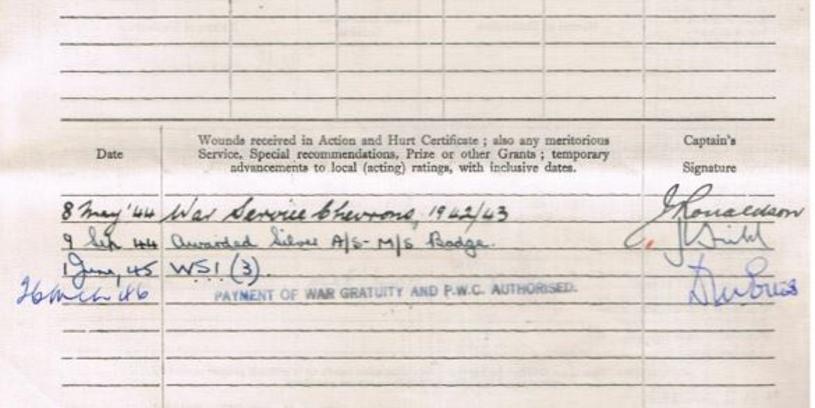 Date
Wounds received in Action and Hurt Certificate ; also any meritorious
Service, Special recommendations, Prize or other Grants ; temporary
advancements to local (acting) ratings, with inclusive dates.
Captain's
Signature
8 May '44 War Service Chevrons, 1942/43
9 Sep 44 Awarded Silver A/S - M/S Badge.
1 June, 45 WSI (3).
46 PAYMENT OF WAR GRATUITY AND P.W.C. AUTHORISED.